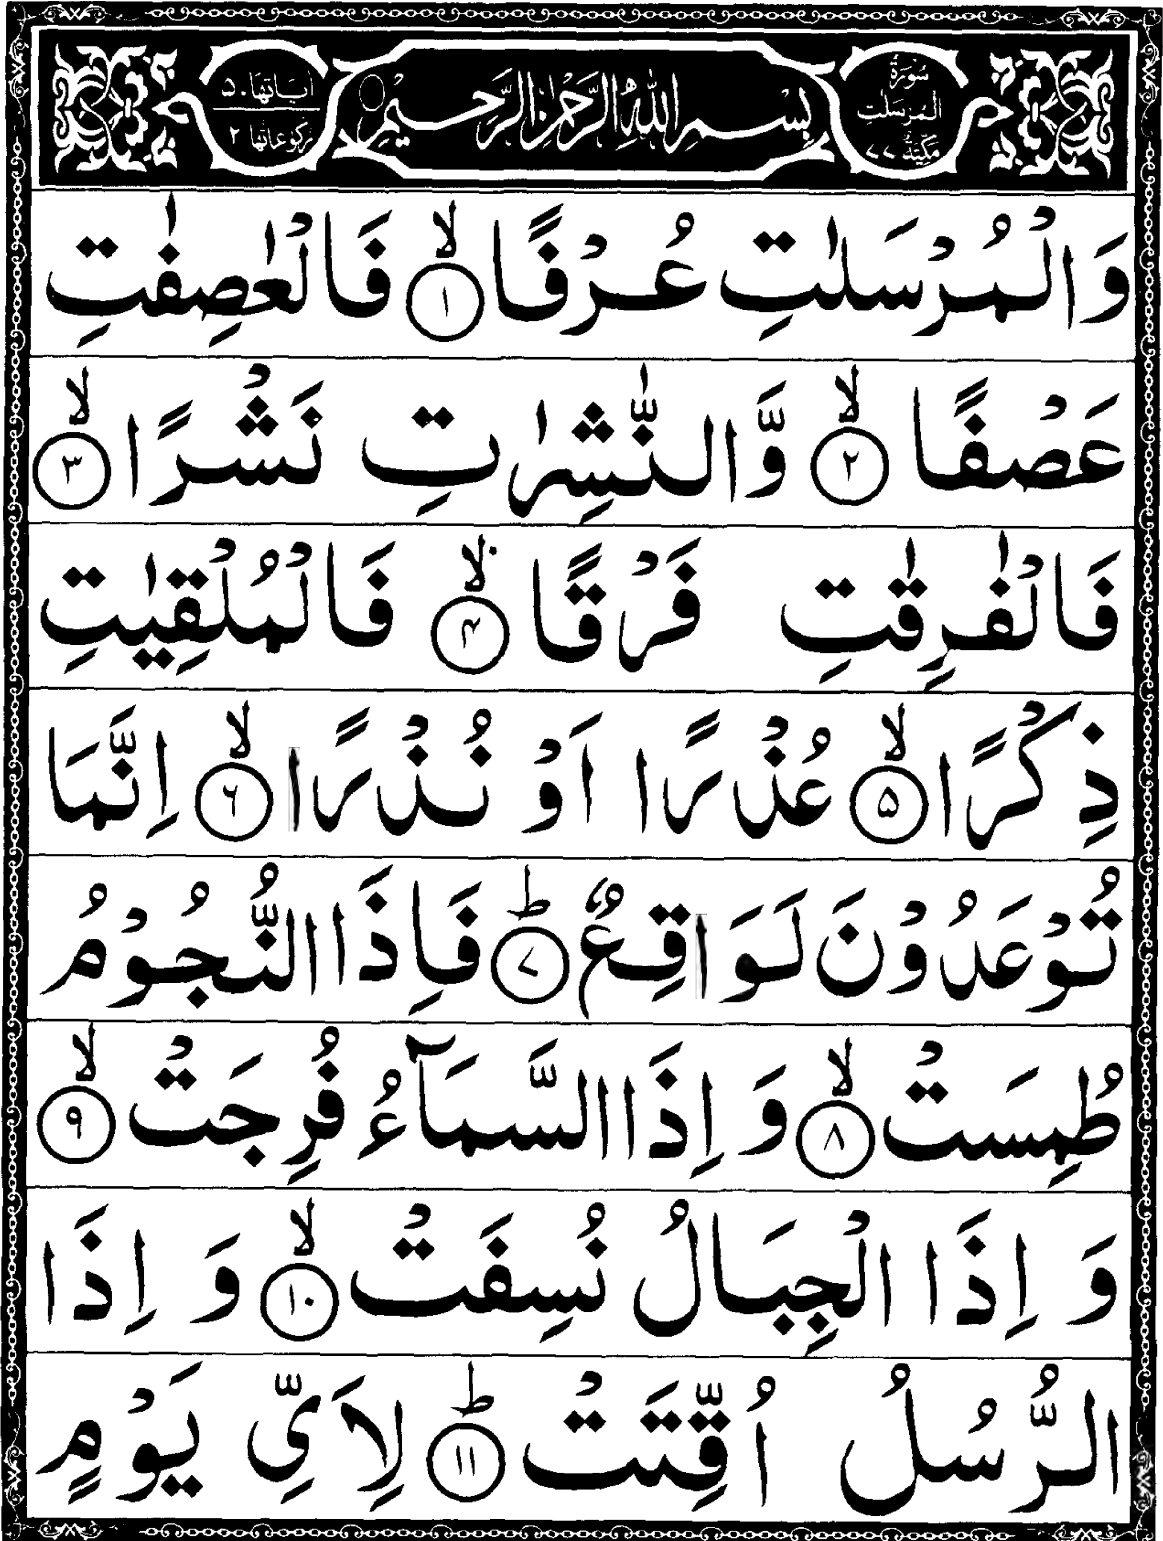 سُوْرَةُ الْمُرْسَلٰت مَكِّيَّةٌ ٧٧
بِسْمِ اللّٰهِ الرَّحْمٰنِ الرَّحِيْمِ
اٰيَاتُهَا ٥٠ رُكُوْعَاتُهَا ٢
وَالْمُرْسَلٰتِ عُرْفًا ۙ﴿١﴾ فَالْعٰصِفٰتِ
عَصْفًا ۙ﴿٢﴾ وَّالنّٰشِرٰتِ نَشْرًا ۙ﴿٣﴾
فَالْفٰرِقٰتِ فَرْقًا ۙ﴿۴﴾ فَالْمُلْقِيٰتِ
ذِكْرًا ۙ﴿۵﴾ عُذْرًا اَوْ نُذْرًا ۙ﴿۶﴾ اِنَّمَا
تُوْعَدُوْنَ لَوَاقِعٌ ؕ﴿٧﴾ فَاِذَا النُّجُوْمُ
طُمِسَتْ ۙ﴿٨﴾ وَ اِذَا السَّمَآءُ فُرِجَتْ ۙ﴿٩﴾
وَ اِذَا الْجِبَالُ نُسِفَتْ ۙ﴿١٠﴾ وَ اِذَا
الرُّسُلُ اُقِّتَتْ ؕ﴿١١﴾ لِاَیِّ يَوْمٍ